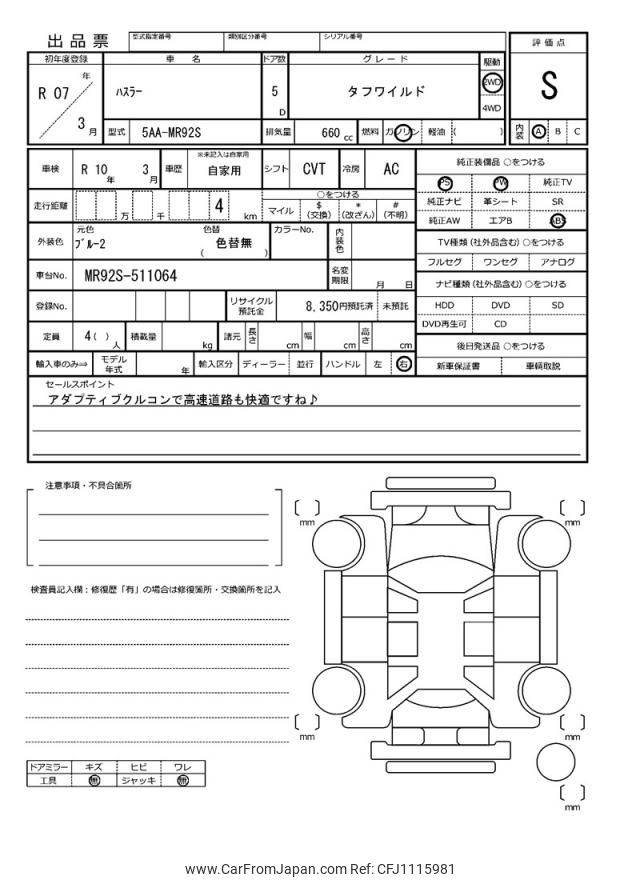 出品票 型式指定番号 類別区分番号 シリアル番号
評価点
初年度登録 車名 ドア数 グレード 駆動
R 07 年 3 月
ハスラー
5 D
タフワイルド
2WD
4WD
S
型式 5AA-MR92S 排気量 660 cc 燃料 ガソリン 軽油 ( )
内装 A B C
車検 R 10 年 3 月 車歴 ※未記入は自家用 自家用 シフト CVT 冷房 AC
純正装備品 ○をつける
PS PW 純正TV
純正ナビ 革シート SR
純正AW エアB ABS
走行距離 万 千 4 km
○をつける
マイル $(交換) *(改ざん) #(不明)
外装色 元色 ブルー2 色替 色替無 ( ) カラーNo. 内装色
TV種類(社外品含む)○をつける
フルセグ ワンセグ アナログ
車台No. MR92S-511064 名変期限 月 日
ナビ種類(社外品含む)○をつける
HDD DVD SD
DVD再生可 CD
登録No. リサイクル預託金 8,350円預託済 未預託
定員 4( ) 人 積載量 kg 諸元 長さ cm 幅 cm 高さ cm
後日発送品 ○をつける
新車保証書 車輌取説
輸入車のみ⇒ モデル年式 年 輸入区分 ディーラー 並行 ハンドル 左 右
セールスポイント
アダプティブクルコンで高速道路も快適ですね♪
注意事項・不具合箇所
検査員記入欄:修復歴「有」の場合は修復箇所・交換箇所を記入
mm
mm
mm
mm
mm
ドアミラー キズ ヒビ ワレ
工具 無 ジャッキ 無
www.CarFromJapan.com Ref: CFJ1115981